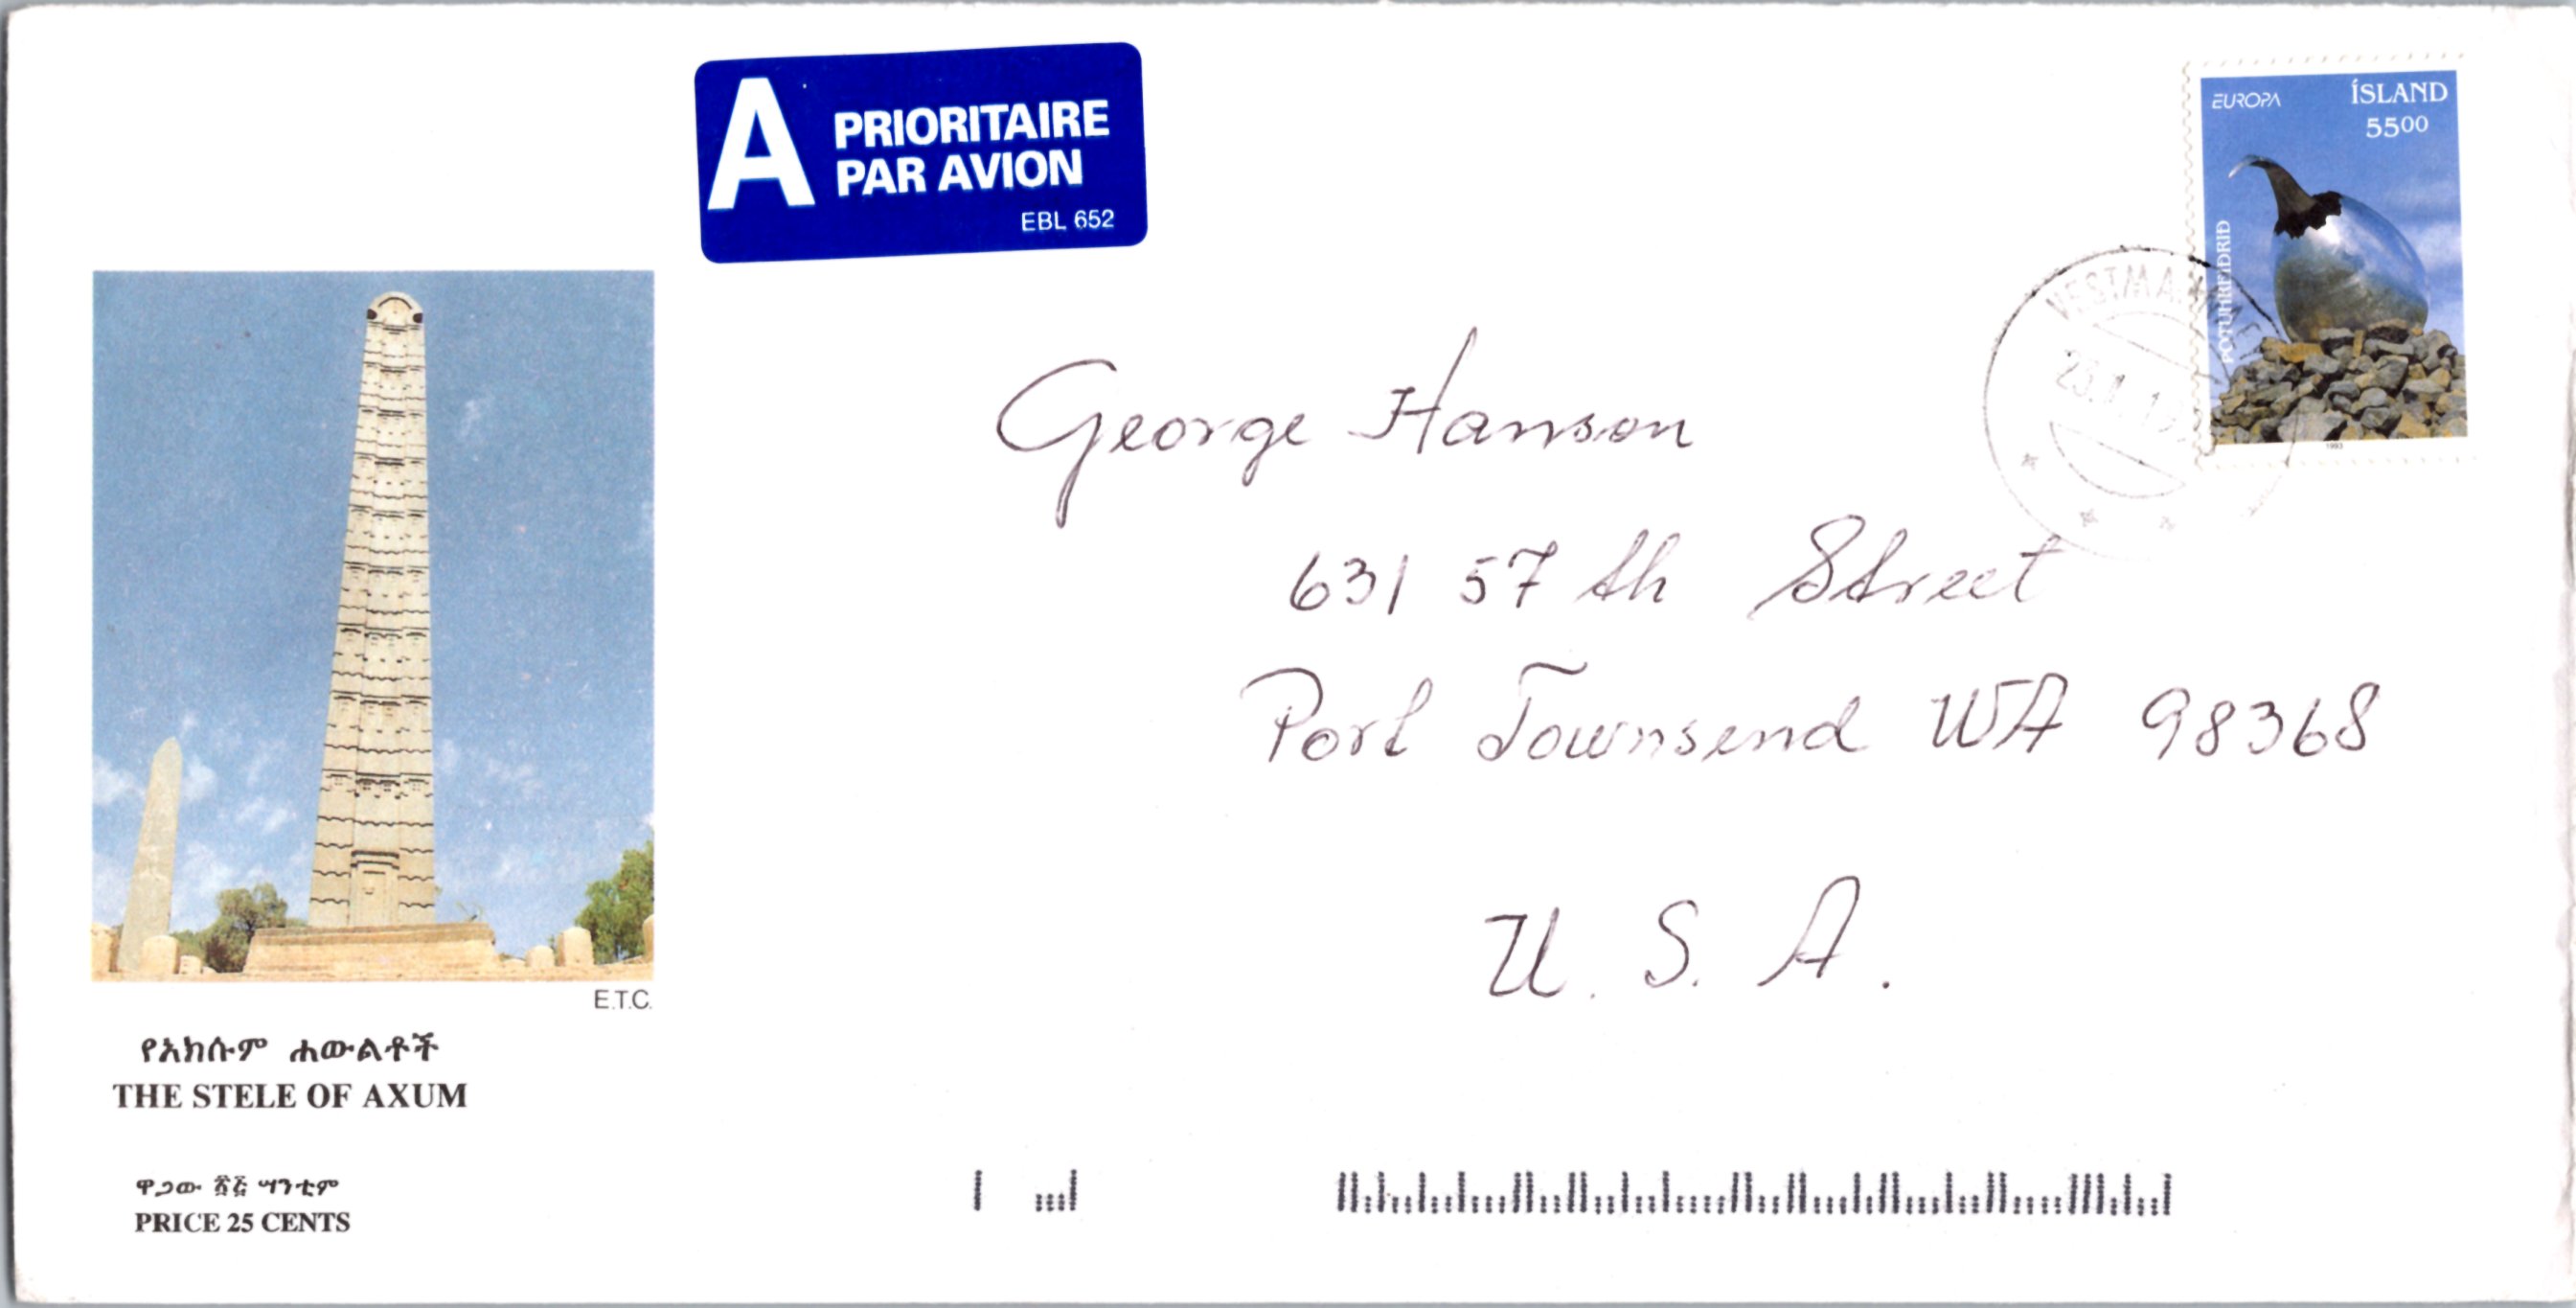 A PRIORITAIRE
PAR AVION
EBL 652
EUROPA
ÍSLAND
5500
ÞOTUHREIÐRIÐ
1993
George Hanson
631 57 th Street
Port Townsend WA 98368
U. S. A.
E.T.C.
የአክሱም ሐውልቶች
THE STELE OF AXUM
ዋጋው ፳፭ ሣንቲም
PRICE 25 CENTS